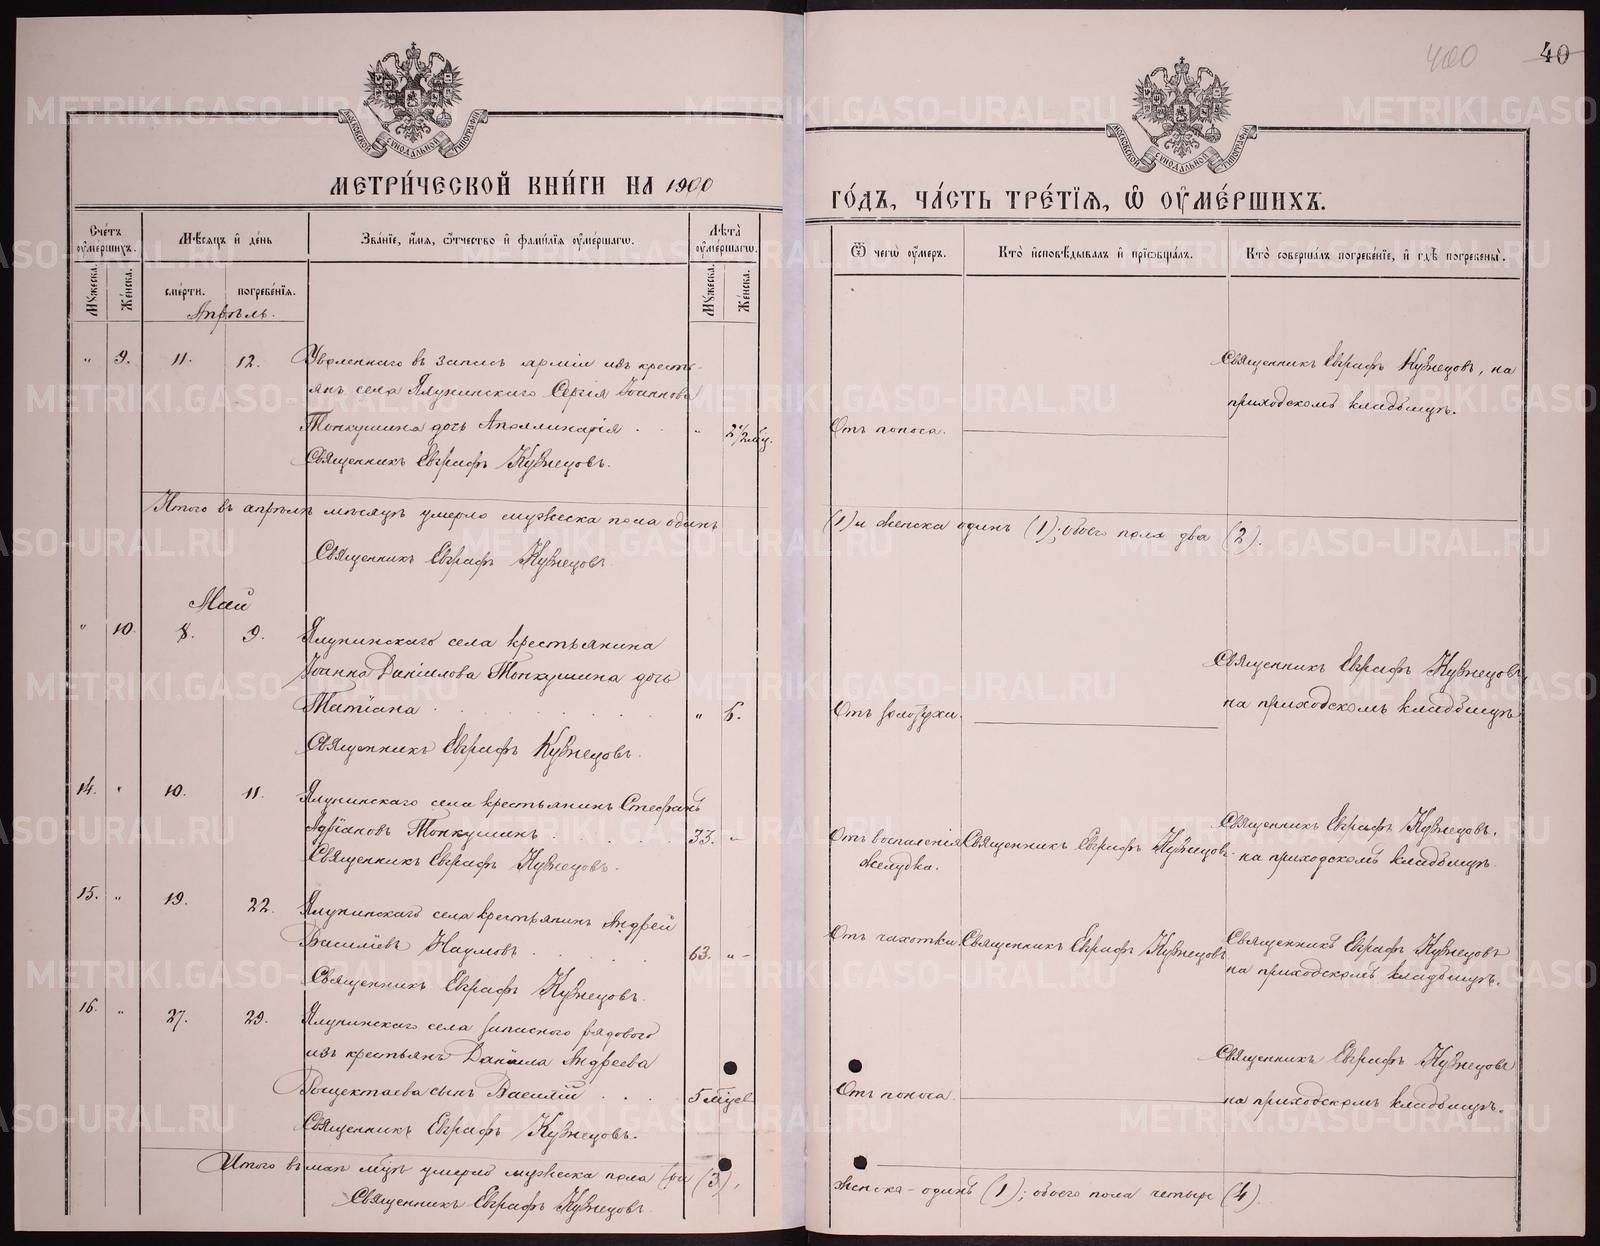 400 40
МОСКОВСКОЙ СѴНОДАЛЬНОЙ ТИПОГРАФІИ
МОСКОВСКОЙ СѴНОДАЛЬНОЙ ТИПОГРАФІИ
МЕТРИ́ЧЕСКОЙ КНИ́ГИ НА 1900
ГО́ДЪ, ЧА́СТЬ ТРЕ́ТІЯ, Ѡ ОУМЕ́РШИХЪ.
Сче́тъ оуме́ршихъ.
Му́жеска.
Же́нска.
Мѣ́сяцъ и де́нь
сме́рти.
погребе́нія.
Зва́ніе, и́мя, ѻ́тчество и фами́лія оуме́ршагѡ.
Лѣ́та оуме́ршагѡ.
Му́жеска.
Же́нска.
Ѿ чегѡ̀ оу́меръ.
Кто̀ исповѣ́дывалъ и прїѡбща́лъ.
Кто̀ соверша́лъ погребе́ніе, и гдѣ̀ погребены̀.
Апрѣль.
" 9. 11. 12. Уволеннаго въ запасъ арміи изъ кресть-
янъ села Ялунинскаго Сергія Іоаннова
Топкушина дочь Аполлинарія . . " 2½ мц.
Священникъ Евграфъ Кузнецовъ.
Отъ поноса.
Священникъ Евграфъ Кузнецовъ, на
приходскомъ кладбищѣ.
Итого въ апрѣлѣ мѣсяцѣ умерло мужеска пола одинъ
(1) и женска одинъ (1); обоего пола два (2).
Священникъ Евграфъ Кузнецовъ.
Май
" 10. 8. 9. Ялунинскаго села крестьянина
Іоанна Даніилова Топкушина дочь
Татіана . . . . " 6.
Священникъ Евграфъ Кузнецовъ.
Отъ золотухи.
Священникъ Евграфъ Кузнецовъ,
на приходскомъ кладбищѣ
14. " 10. 11. Ялунинскаго села крестьянинъ Стефанъ
Адріановъ Топкушинъ . . . . 33. "
Священникъ Евграфъ Кузнецовъ.
Отъ воспаленія
желудка.
Священникъ Евграфъ Кузнецовъ.
Священникъ Евграфъ Кузнецовъ,
на приходскомъ кладбищѣ.
15. " 19. 22. Ялунинскаго села крестьянинъ Андрей
Василіевъ Наумовъ . . . . 63. "
Священникъ Евграфъ Кузнецовъ.
Отъ чахотки.
Священникъ Евграфъ Кузнецовъ
Священникъ Евграфъ Кузнецовъ
на приходскомъ кладбищѣ.
16. " 27. 29. Ялунинскаго села запаснаго рядового
изъ крестьянъ Даніила Андреева
сынъ Василій . . . 5 мѣсе
Священникъ Евграфъ Кузнецовъ.
Отъ поноса.
Священникъ Евграфъ Кузнецовъ
на приходскомъ кладбищѣ.
Итого въ маѣ мцѣ умерло мужеска пола три (3),
женска - одинъ (1); обоего пола четыре (4).
Священникъ Евграфъ Кузнецовъ.
METRIKI.GASO-URAL.RU